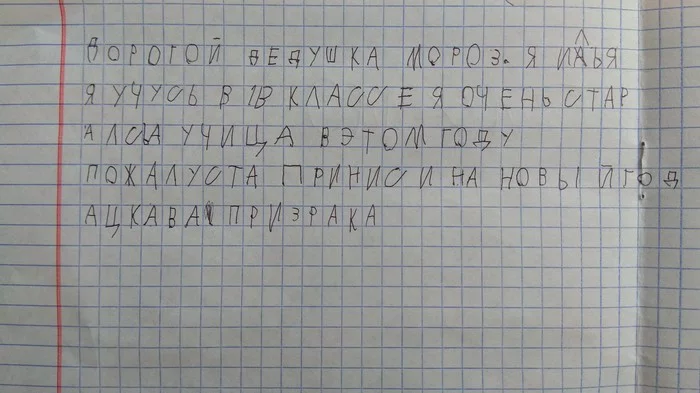 ДОРОГОЙ ДЕДУШКА МОРОЗ. Я ИЛЬЯ
Я УЧУСЬ В 1В КЛАССЕ Я ОЧЕНЬ СТАР
АЛСЯ УЧИЦА В ЭТОМ ГОДУ
ПОЖАЛУСТА ПРИНИСИ НА НОВЫЙ ГОД
АЦКАВА ПРИЗРАКА